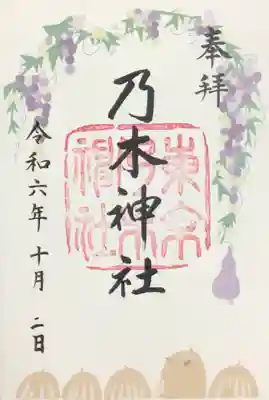 奉拝
乃木神社
東京乃木神社
令和六年十月二日